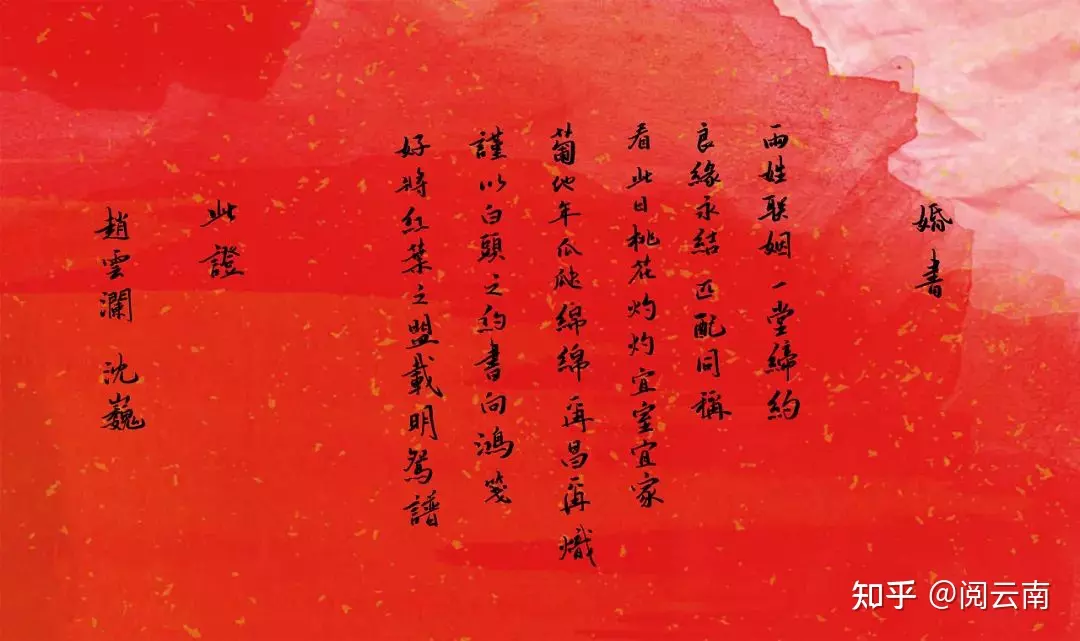 婚書
两姓联姻一堂締約
良緣永結匹配同稱
看此日桃花灼灼宜室宜家
蔔他年瓜瓞綿綿爾昌爾熾
謹以白頭之約書向鴻箋
好將紅葉之盟載明鴛譜
此證
趙雲瀾 沈巍
知乎 @阅云南